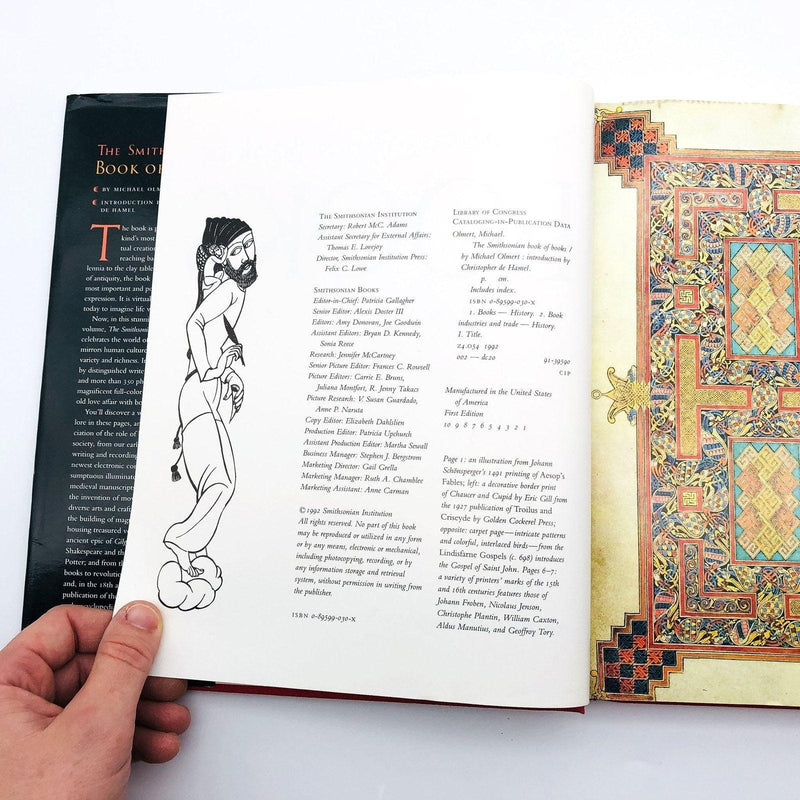 THE SMITH
BOOK OF
BY MICHAEL OLM
INTRODUCTION
DE HAMEL
The book is p
kind's most
tual creation
reaching ba
lennia to the clay table
of antiquity, the book
most important and po
expression. It is virtua
today to imagine life w
Now, in this stunn
volume, The Smithsoni
celebrates the world of
mirrors human culture
variety and richness. I
by distinguished write
and more than 350 ph
magnificent full-color
old love affair with bo
You'll discover a w
lore in these pages, an
ciation of the role of
society, from our earl
writing and recording
newest electronic co
sumptuous illuminate
medieval manuscripts
the invention of mov
diverse arts and craft
the building of magn
housing treasured v
ancient epic of Gilg
Shakespeare and the
Potter; and from th
books to revolution
and, in the 18th a
THE SMITHSONIAN INSTITUTION
Secretary: Robert McC. Adams
Assistant Secretary for External Affairs:
Thomas E. Lovejoy
Director, Smithsonian Institution Press:
Felix C. Lowe
SMITHSONIAN BOOKS
Editor-in-Chief: Patricia Gallagher
Senior Editor: Alexis Doster III
Editors: Amy Donovan, Joe Goodwin
Assistant Editors: Bryan D. Kennedy,
Sonia Reece
Research: Jennifer McCartney
Senior Picture Editor: Frances C. Rowsell
Picture Editors: Carrie E. Bruns,
Juliana Montfort, R. Jenny Takacs
Picture Research: V. Susan Guardado,
Anne P. Naruta
Copy Editor: Elizabeth Dahlslien
Production Editor: Patricia Upchurch
Assistant Production Editor: Martha Sewall
Business Manager: Stephen J. Bergstrom
Marketing Director: Gail Grella
Marketing Manager: Ruth A. Chamblee
Marketing Assistant: Anne Carman
©1992 Smithsonian Institution
All rights reserved. No part of this book
may be reproduced or utilized in any form
or by any means, electronic or mechanical,
including photocopying, recording, or by
any information storage and retrieval
system, without permission in writing from
the publisher.
ISBN 0-89599-030-X
LIBRARY OF CONGRESS
CATALOGING-IN-PUBLICATION DATA
Olmert, Michael.
The Smithsonian book of books /
by Michael Olmert : introduction by
Christopher de Hamel.
p. cm.
Includes index.
ISBN 0-89599-030-X
1. Books — History. 2. Book
industries and trade — History.
I. Title.
Z4.O54 1992
002 — dc20 91-39590
CIP
Manufactured in the United States
of America
First Edition
10 9 8 7 6 5 4 3 2 1
Page 1: an illustration from Johann
Schönsperger's 1491 printing of Aesop's
Fables; left: a decorative border print
of Chaucer and Cupid by Eric Gill from
the 1927 publication of Troilus and
Criseyde by Golden Cockerel Press;
opposite: carpet page—intricate patterns
and colorful, interlaced birds—from the
Lindisfarne Gospels (c. 698) introduces
the Gospel of Saint John. Pages 6–7:
a variety of printers' marks of the 15th
and 16th centuries features those of
Johann Froben, Nicolaus Jenson,
Christophe Plantin, William Caxton,
Aldus Manutius, and Geoffroy Tory.